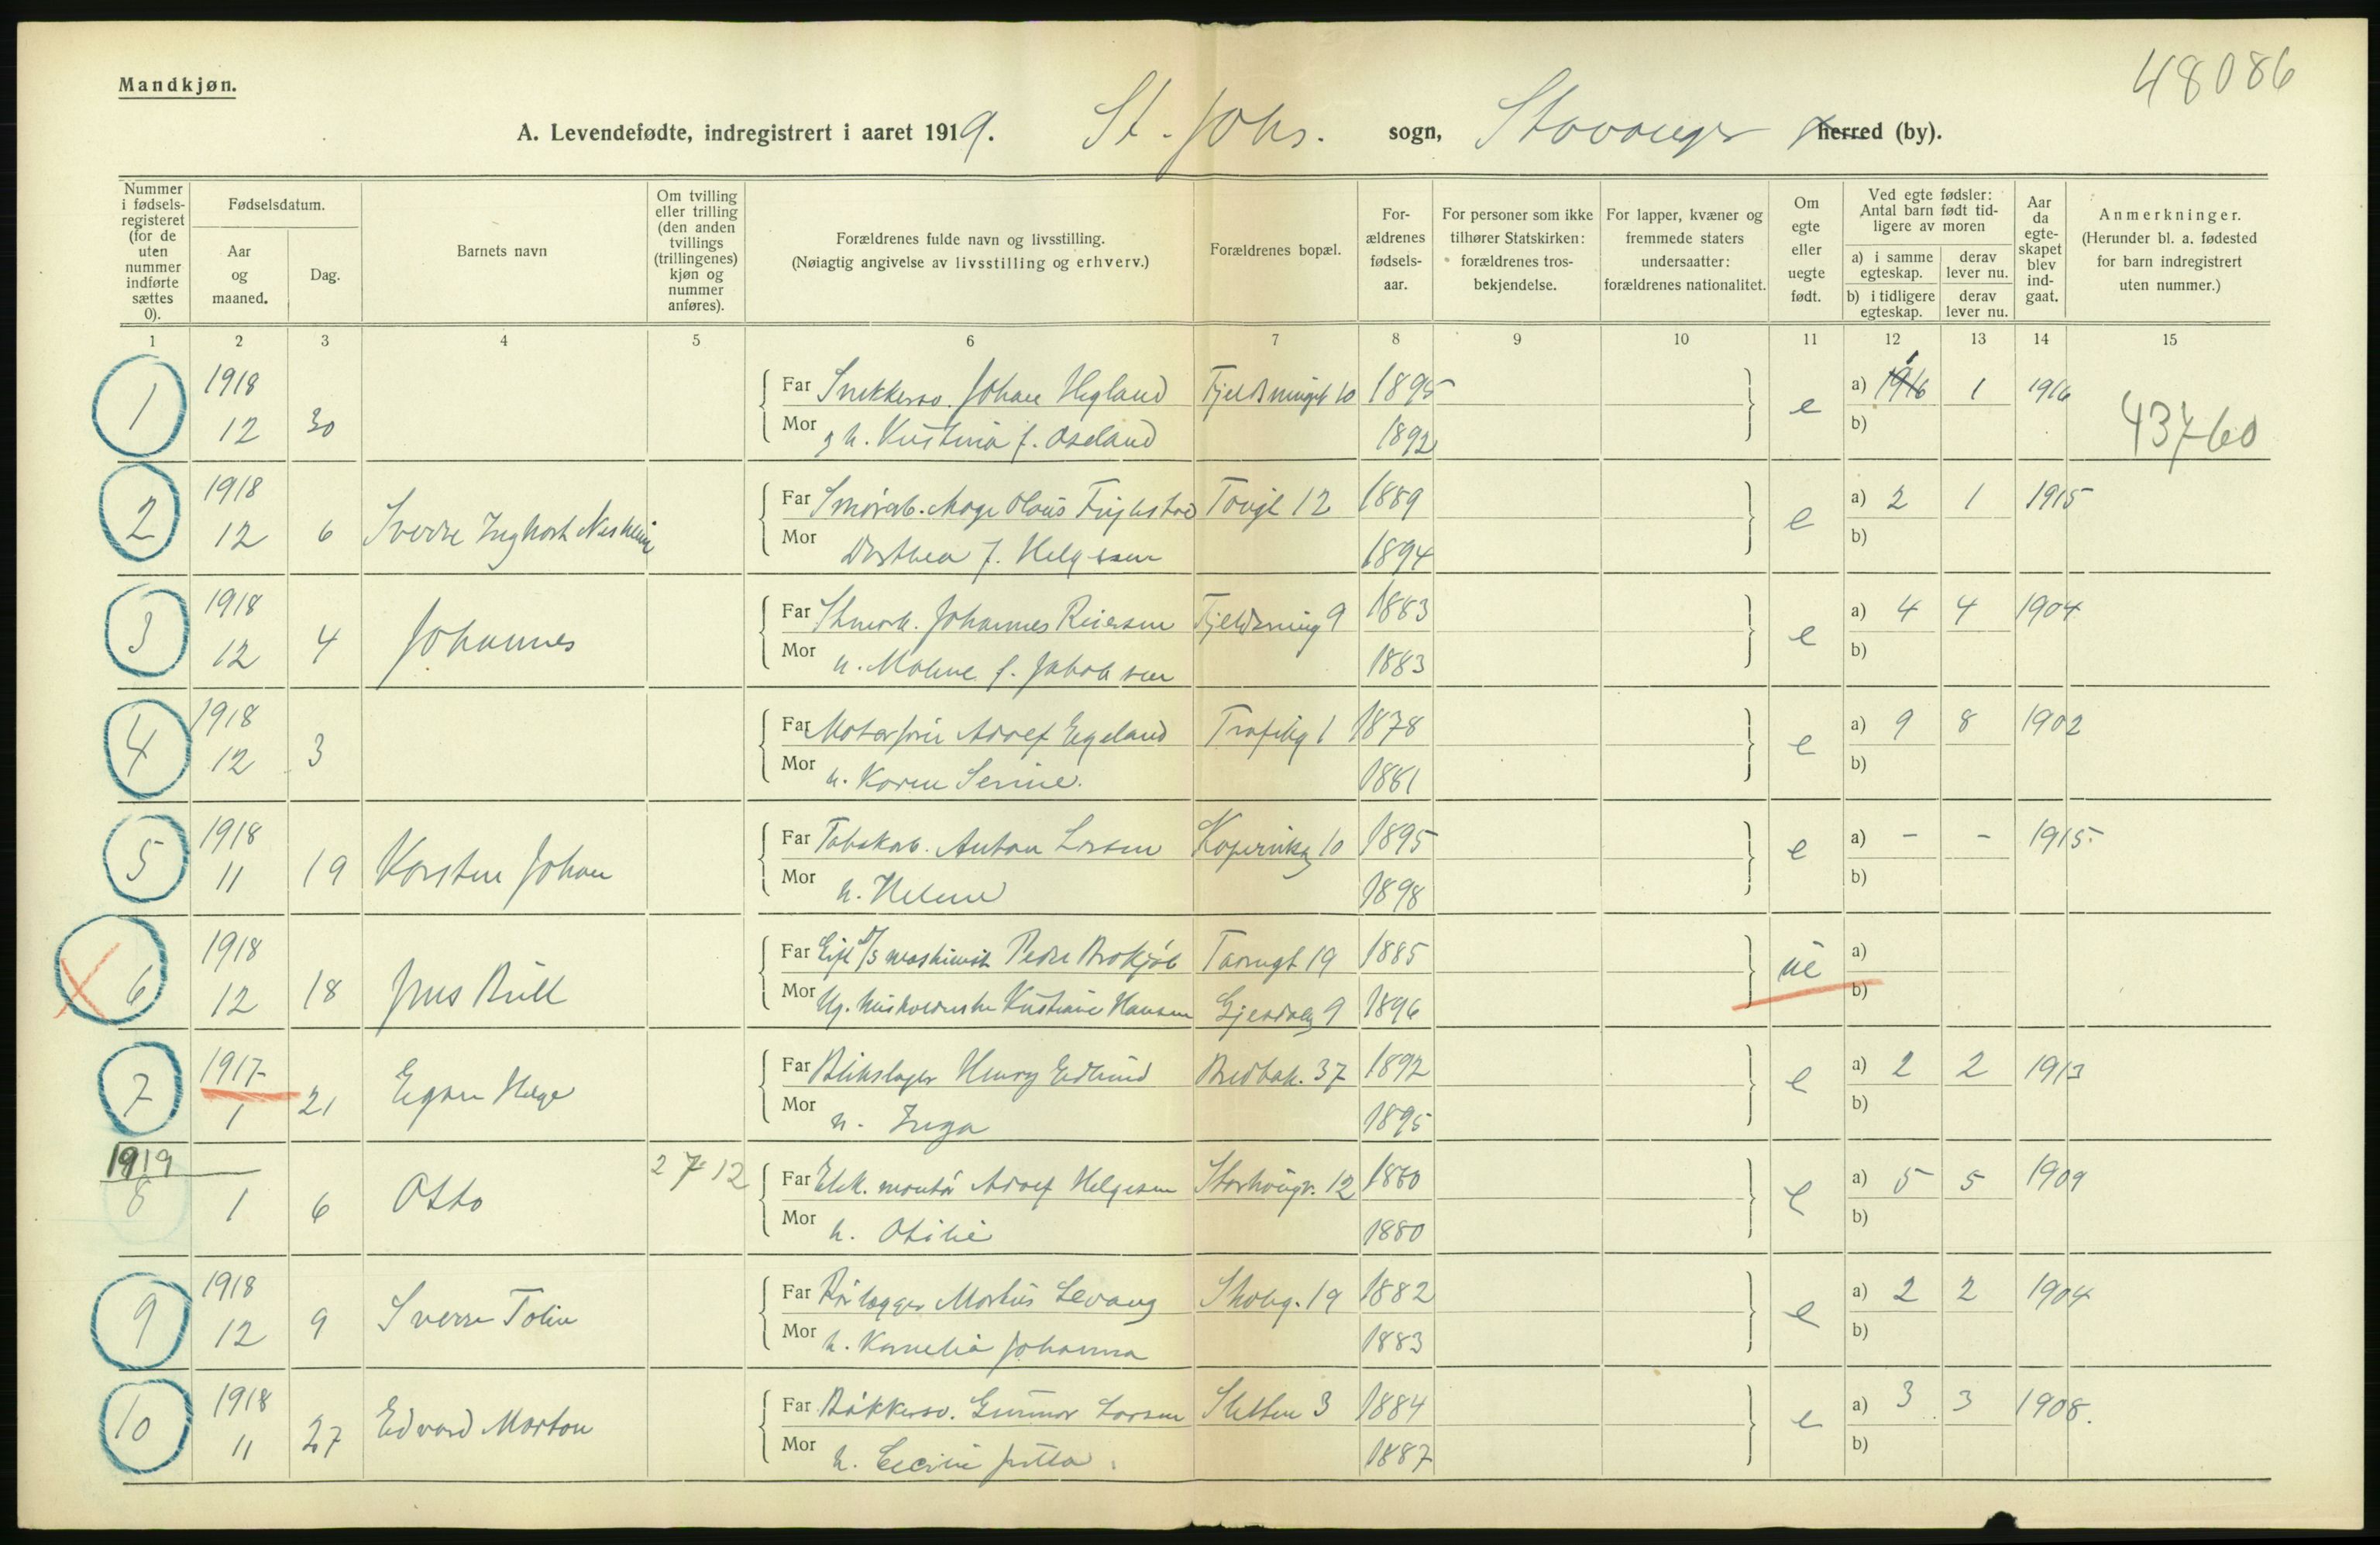 48086
Mandkjøn.
A. Levendefødte, indregistrert i aaret 1919. St. Johs. sogn, Stavanger herred (by).
Nummer i fødselsregisteret (for de uten nummer indførte sættes 0).
Fødselsdatum.
Aar og maaned.
Dag.
Barnets navn
Om tvilling eller trilling (den anden tvillings (trillingenes) kjøn og nummer anføres).
Forældrenes fulde navn og livsstilling.
(Nøiagtig angivelse av livsstilling og erhverv.)
Forældrenes bopæl.
Forældrenes fødselsaar.
For personer som ikke tilhører Statskirken: forældrenes trosbekjendelse.
For lapper, kvæner og fremmede staters undersaatter: forældrenes nationalitet.
Om egte eller uegte født.
Ved egte fødsler: Antal barn født tidligere av moren
a) i samme egteskap. derav lever nu.
b) i tidligere egteskap. derav lever nu.
Aar da egteskapet blev indgaat.
Anmerkninger.
(Herunder bl. a. fødested for barn indregistrert uten nummer.)
1 2 3 4 5 6 7 8 9 10 11 12 13 14 15
1 1918 Far Snekkersv. Johan Hegland 10 1895 e a) 1 1 1916
12 30 Mor f. Aseland 1892 b) 43760
2 1918 Far Olaus 12 1889 e a) 2 1 1915
12 6 Sverre Mor Dorthea f. Helgesen 1894 b)
3 1918 Far Johannes Reiersen 9 1883 e a) 4 4 1904
12 4 Johannes Mor h. Malene f. Jakobsen 1883 b)
4 1918 Far Adolf Egeland 1 1878 e a) 9 8 1902
12 3 Mor h. Karen Serine. 1881 b)
5 1918 Far Tobakarb. Anton Larsen Kopervikg 10 1895 e a) - - 1915.
11 19 Karsten Johan Mor h. Helene 1898 b)
6 1918 Far maskinist Peder 19 1885 ue a)
12 18 Jens Bull Mor Ug. Kristiane Hansen Gjesdalg 9 1896 b)
7 1917 Far Blikslager Henry Edlund Bredbak. 37 1892 e a) 2 2 1913
1 21 Egon Helge Mor h. Inga 1895 b)
1919 2712 Far Elek. montør Adolf Helgesen Storhaugv. 12 1880 e a) 5 5 1909
8 1 6 Otto Mor h. Otilie 1880 b)
9 1918 Far Rørlægger Martius Levang Skoleg. 19 1882 e a) 2 2 1904
12 9 Sverre Tolin Mor h. Kornelia Johanna 1883 b)
10 1918 Far Bøkkersv. Gunnar Larsen Sletten 3 1884 e a) 3 3 1908.
11 27 Edvard Morton Mor h. Cecilie Jutta. 1887 b)